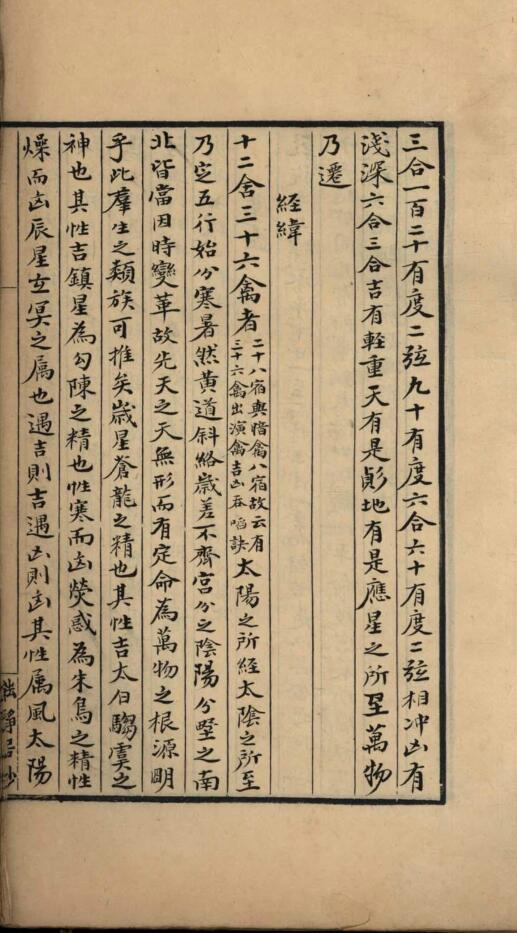 三合一百二十有度二弦九十有度六合六十有度二弦相冲凶有
淺深六合三合吉有輕重天有是躔地有是應星之所至萬物
乃遷
經緯
十二舍三十六禽者二十八宿與暗禽八宿故云有三十六禽出演禽吉凶吞啗訣太陽之所經太陰之所至
乃定五行始分寒暑然黃道斜絡歲差不齊宮分之陰陽分墅之南
北皆當因時變革故先天之天無形而有定命為萬物之根源明
乎此羣生之類族可推矣歲星蒼龍之精也其性吉太白騶虞之
神也其性吉鎮星為勾陳之精也性寒而凶熒惑為朱鳥之精性
燥而凶辰星玄冥之属也遇吉則吉遇凶則凶其性属風太陽
静居抄